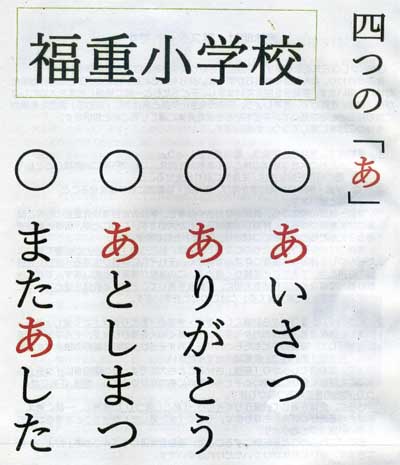 四つの「あ」
福重小学校
○あいさつ
○ありがとう
○あとしまつ
○またあした